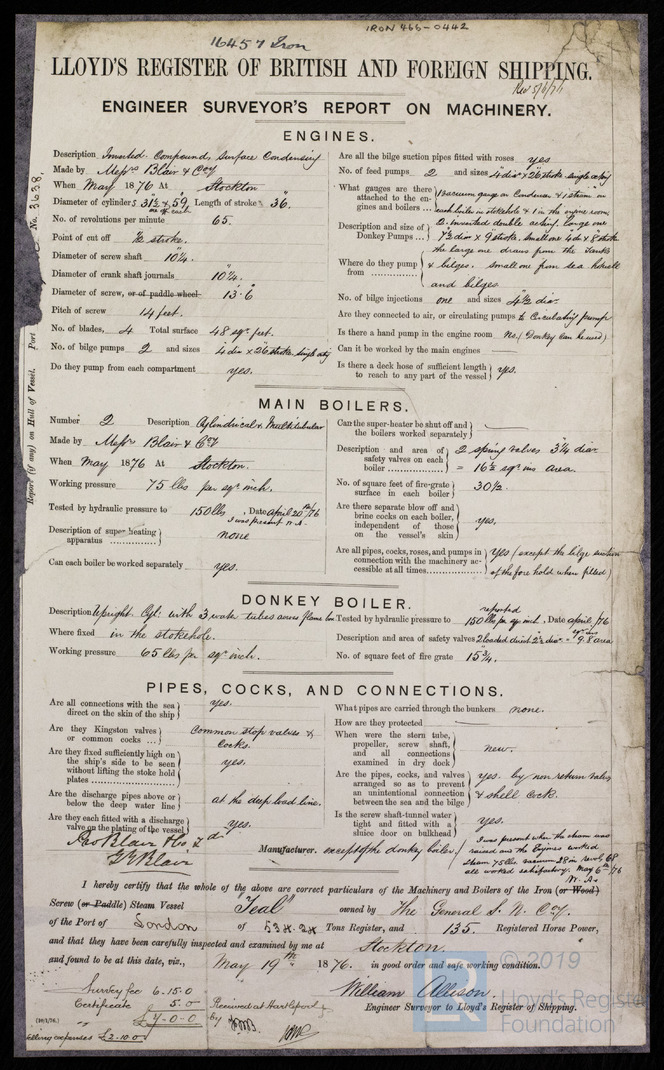 IRON 466-0442
16457 Iron
LLOYD'S REGISTER OF BRITISH AND FOREIGN SHIPPING.
Rec 5/6/76
ENGINEER SURVEYOR'S REPORT ON MACHINERY.
ENGINES.
Description Inverted Compound, Surface Condensing
Made by Messrs Blair & Coy
When May 1876 At Stockton
Diameter of cylinders 31½ & 59, Length of stroke 36".
No. of revolutions per minute 65.
Point of cut off ½ stroke.
Diameter of screw shaft 10¼.
Diameter of crank shaft journals 10¼.
Diameter of screw, or of paddle wheel 13-6
Pitch of screw 14 feet.
No. of blades, 4 Total surface 48 sqr. feet.
No. of bilge pumps 2 and sizes 4 dia x 26 stroke single acty
Do they pump from each compartment yes.
Are all the bilge suction pipes fitted with roses yes
No. of feed pumps 2 and sizes 4 dia x 26 stroke single acting
What gauges are there attached to the engines and boilers ... 1 vacuum gauge on Condenser & 1 steam on each boiler in stokehole & 1 in the engine room
Description and size of Donkey Pumps ... 2. Inverted double acting. large one 7½ dia x 9 stroke. Small one 4 dia x 8 stroke
Where do they pump from ............ the large one draws from the Tanks & bilges. small one from sea hotwell and bilges
No. of bilge injections one and sizes 4½ dia.
Are they connected to air, or circulating pumps to Circulating pump
Is there a hand pump in the engine room No. (Donkey can be used)
Can it be worked by the main engines
Is there a deck hose of sufficient length to reach to any part of the vessel yes.
No. 3638.
Port
Report (if any) on Hull of Vessel.
MAIN BOILERS.
Number 2 Description Cylindrical & Multitubular
Made by Messrs Blair & Coy
When May 1876 At Stockton.
Working pressure 75 lbs per sqr inch.
Tested by hydraulic pressure to 150 lbs, Date April 20th/76
I was present W.A.
Description of super heating apparatus none
Can each boiler be worked separately yes.
Can the super-heater be shut off and the boilers worked separately
Description and area of safety valves on each boiler 2 spring valves 3¼ dia. = 16½ sqr ins area.
No. of square feet of fire-grate surface in each boiler 30½.
Are there separate blow off and brine cocks on each boiler, independent of those on the vessel's skin yes.
Are all pipes, cocks, roses, and pumps in connection with the machinery accessible at all times yes (except the bilge suction of the fore hold when filled)
DONKEY BOILER.
Description Upright Cyl: with 3 water tubes across flame box
Where fixed in the stokehole.
Working pressure 65 lbs per sqr inch.
Tested by hydraulic pressure to reported 150 lbs per sqr inch, Date April /76
Description and area of safety valves 2 loaded direct 2½ dia = 9.8 sqr ins area
No. of square feet of fire grate 15¾.
PIPES, COCKS, AND CONNECTIONS.
Are all connections with the sea direct on the skin of the ship yes.
Are they Kingston valves or common cocks ... Common stop valves & Cocks.
Are they fixed sufficiently high on the ship's side to be seen without lifting the stoke hold plates yes.
Are the discharge pipes above or below the deep water line at the deep load line.
Are they each fitted with a discharge valve on the plating of the vessel yes.
What pipes are carried through the bunkers none.
How are they protected
When were the stern tube, propeller, screw shaft, and all connections examined in dry dock new.
Are the pipes, cocks, and valves arranged so as to prevent an unintentional connection between the sea and the bilge yes. by non return valves & shell cock.
Is the screw shaft-tunnel water tight and fitted with a sluice door on bulkhead yes.
G Y Blair
Manufacturer. except of the donkey boiler.
I was present when the steam was raised and the Engines worked steam 75 lbs vacuum 28 in revols 68 all worked satisfactory. May 6th/76 W. A.
I hereby certify that the whole of the above are correct particulars of the Machinery and Boilers of the Iron (or Wood)
Screw (or Paddle) Steam Vessel "Teal" owned by The General S. N. Coy.
of the Port of London of 534.24 Tons Register, and 135. Registered Horse Power,
and that they have been carefully inspected and examined by me at Stockton.
and found to be at this date, viz., May 19th 1876. in good order and safe working condition.
William Allison.
Engineer Surveyor to Lloyd's Register of Shipping.
Survey fee 6-15-0
Certificate 5.0
£7-0-0
Received at Hartlepool
by
£2-10-0
© 2019
LR
Lloyd's Register
Foundation